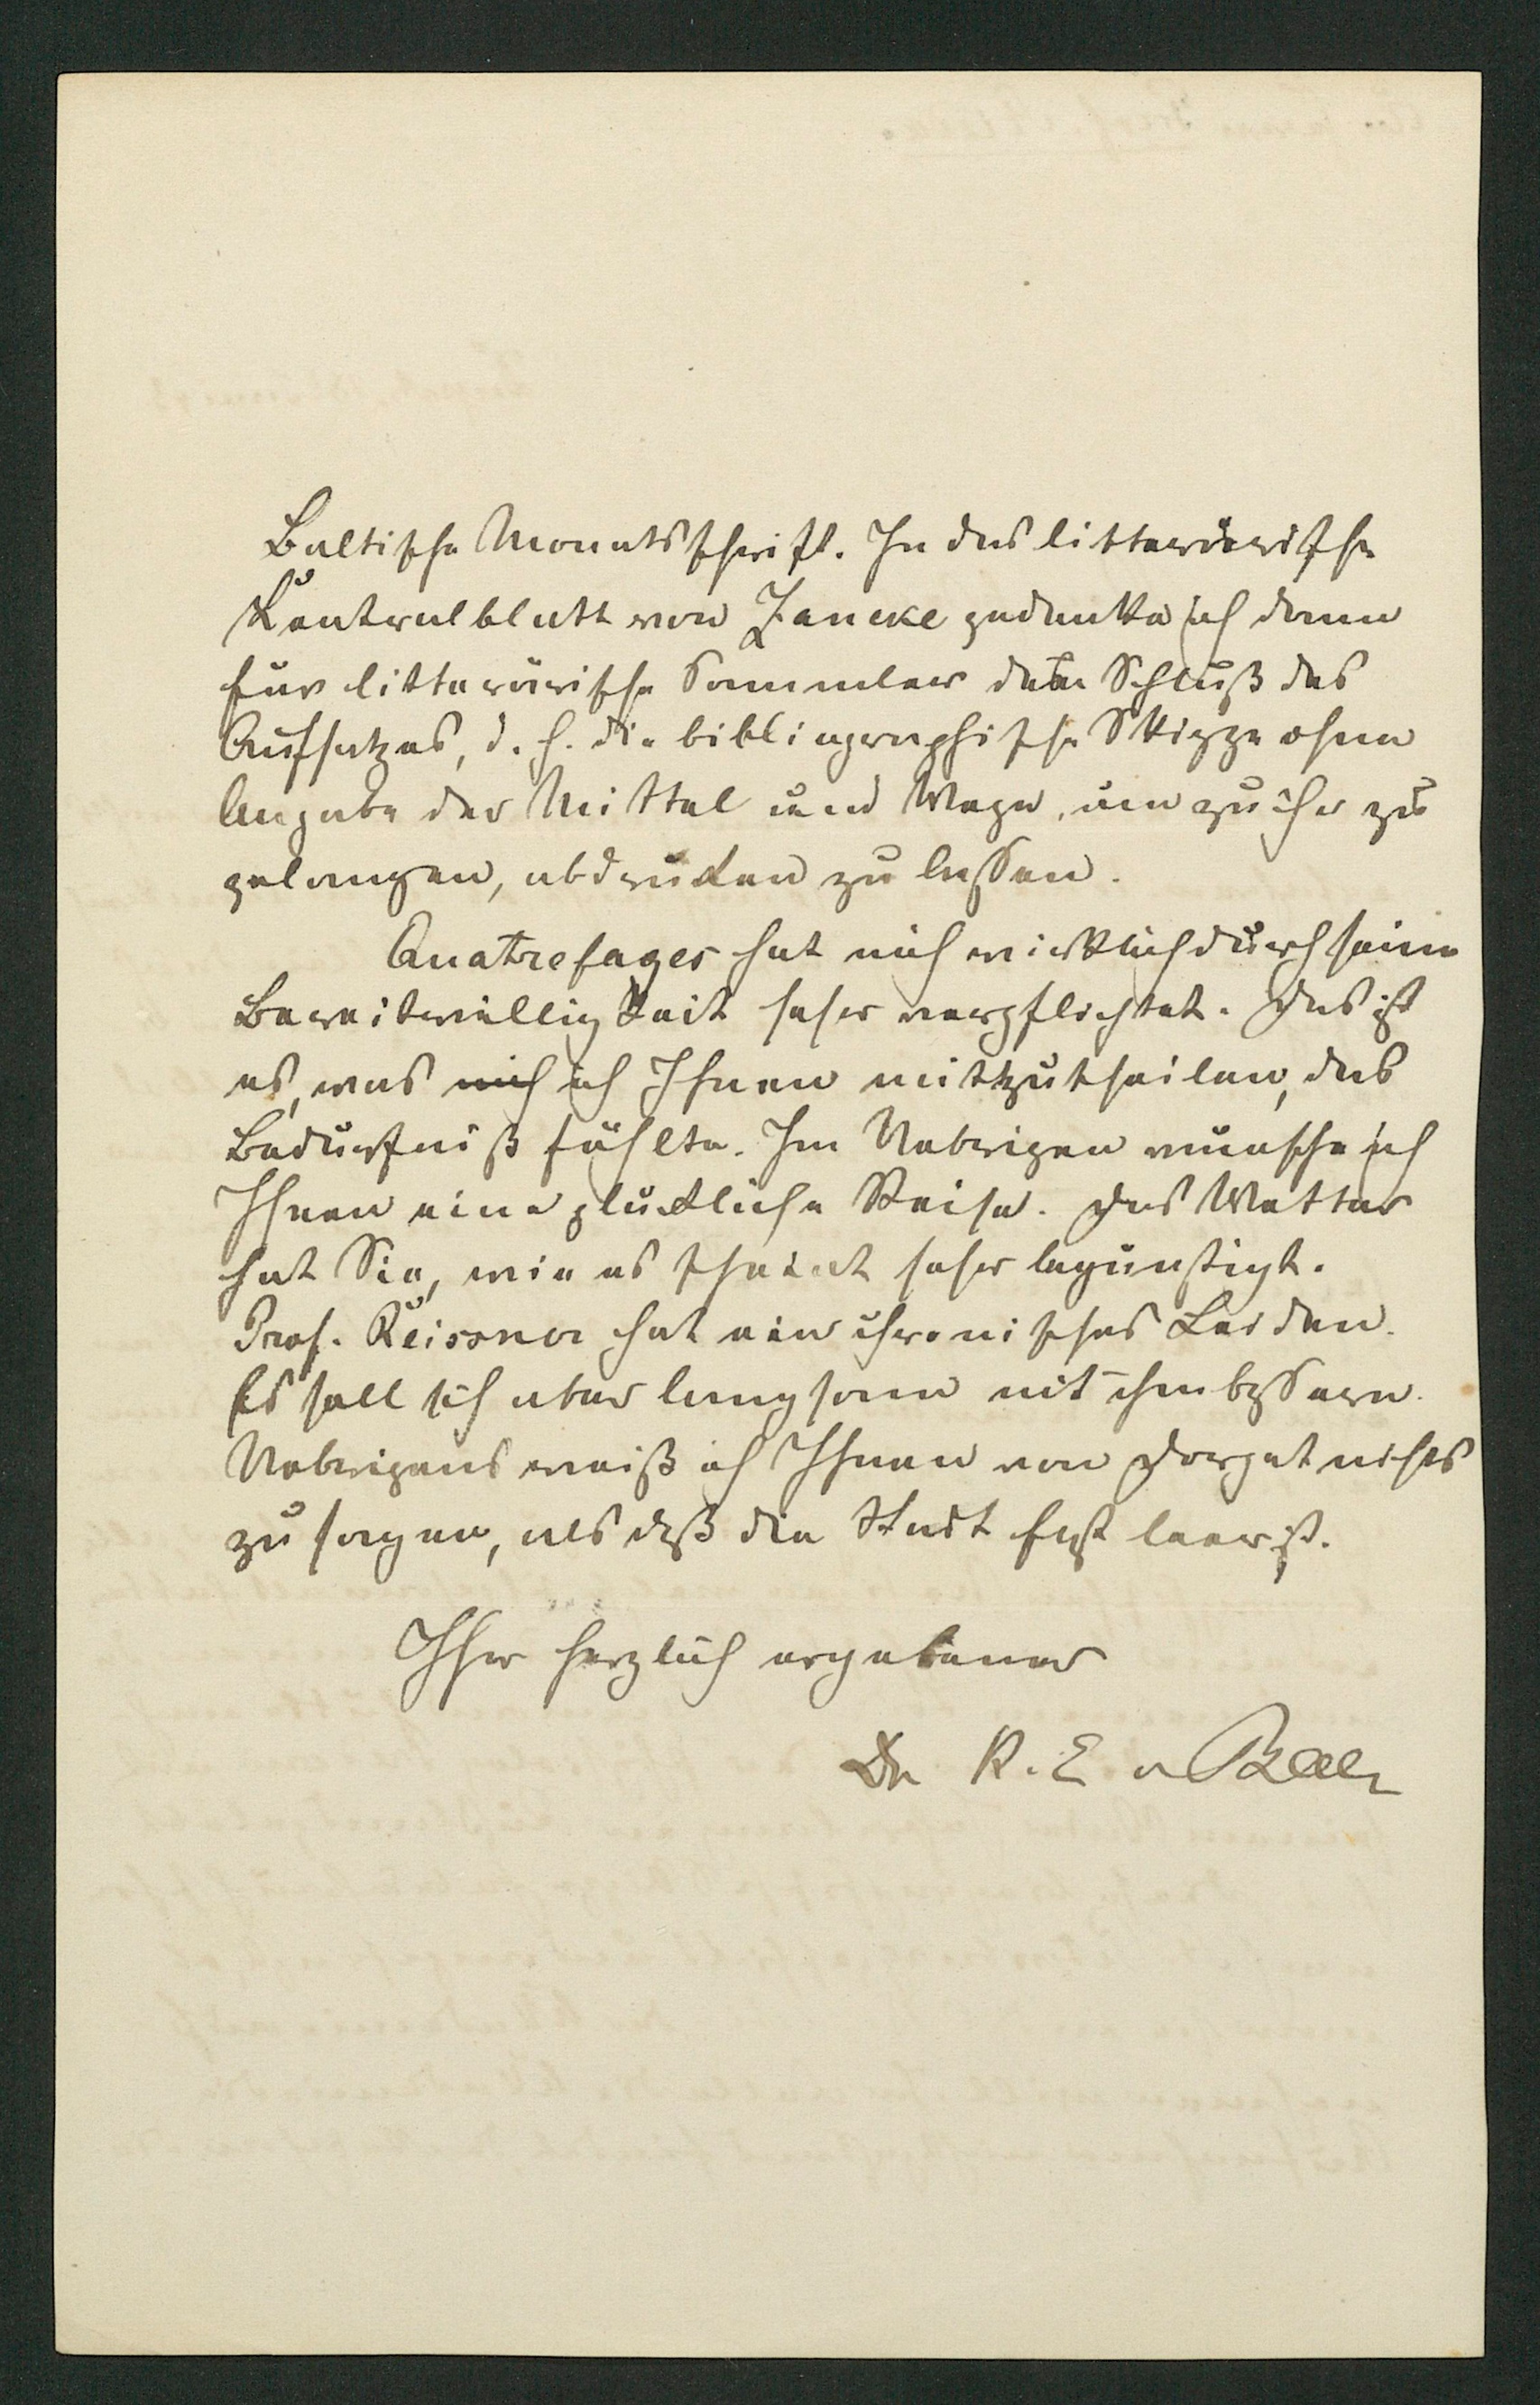 Baltische Monatsschrift. In das litterärische
Centralblatt von Zancke gedenke ich dann
für litterärische Sammler den Schluß des
Aufsatzes, d. h. die bibliographische Skizze ohne
Angabe der Mittel und Wege, um zu ihr zu
gelangen, abdrucken zu lassen.
Quatrefages hat mich wirklich durch seine
Bereitwilligkeit sehr verpflichtet. Das ist
es, was mich ich Ihnen mitzutheilen, das
Bedürfniß fühlte. Im Uebrigen wünsche ich
Ihnen eine glückliche Reise. Das Wetter
hat Sie, wie es scheint sehr begünstigt.
Prof. Reissner hat ein chronisches Leiden.
Es soll sich aber langsam mit ihm bessern.
Uebrigens weiß ich Ihnen von Dorpat nichts
zu sagen, als daß die Stadt fast leer ist.
Ihr herzlich ergebener
Dr K. E. v Baer